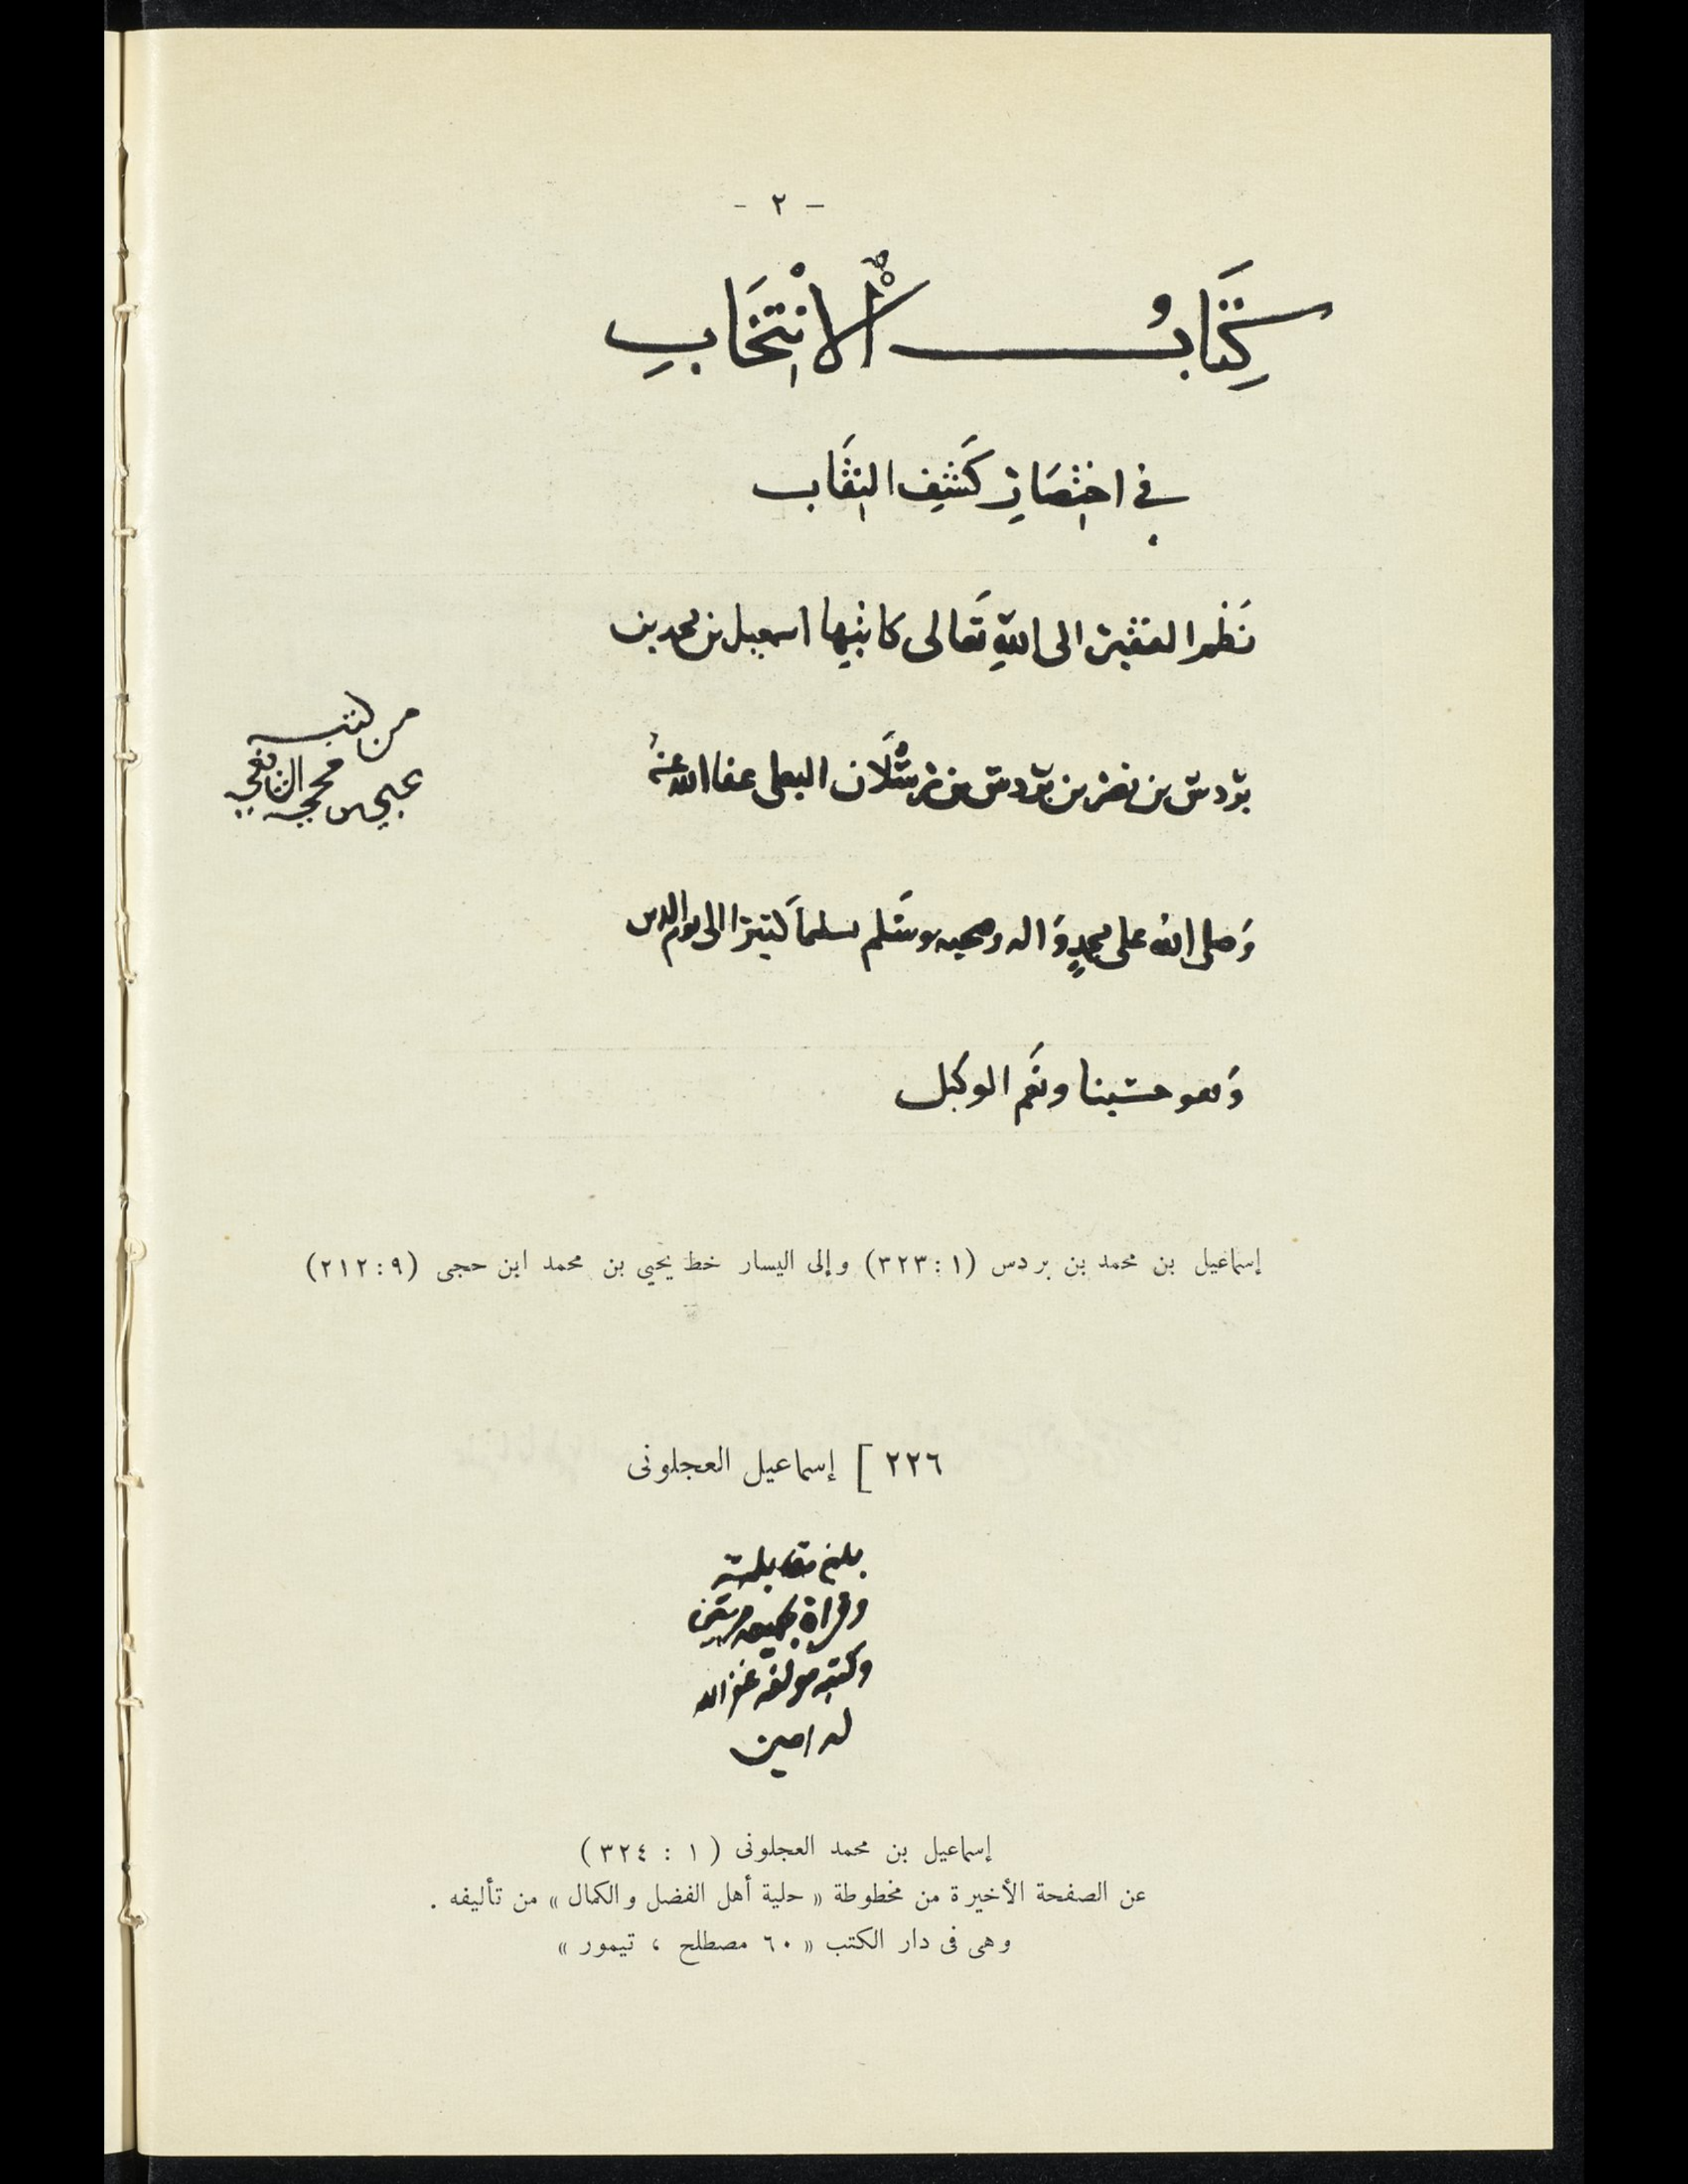 - ٢ -
كِتَابُ الْانْتِخَابِ
في اختِصَارِ كَشفِ النِقَاب
نَظم الفقير الى اللهِ تَعَالى كاتبِها اسمعيل بن محمد بن
بردس بن نصر بن بردس بن رسْلَان البعلى عفا الله عنهُ
من كتب
يحيى بن حجي الشافعي
وَصلى اللهُ على محمدٍ وَاله وصحبه وسَلم تسليماً كثيرا الى يوم الدين
وَهو حسبنا ونَعم الوكيل
إسماعيل بن محمد بن بردس (١ : ٣٢٣) وإلى اليسار خط يحيي بن محمد ابن حجى (٩ : ٢١٢)
٢٢٦ ] إسماعيل العجلونى
بلغ مقابلة
وقراة بجميعه مرتين
وكتبه مولفه غفر الله
له امين
إسماعيل بن محمد العجلونى ( ١ : ٣٢٤ )
عن الصفحة الأخيرة من مخطوطة « حلية أهل الفضل والكمال » من تأليفه .
وهى فى دار الكتب « ٦٠ مصطلح ، تيمور »